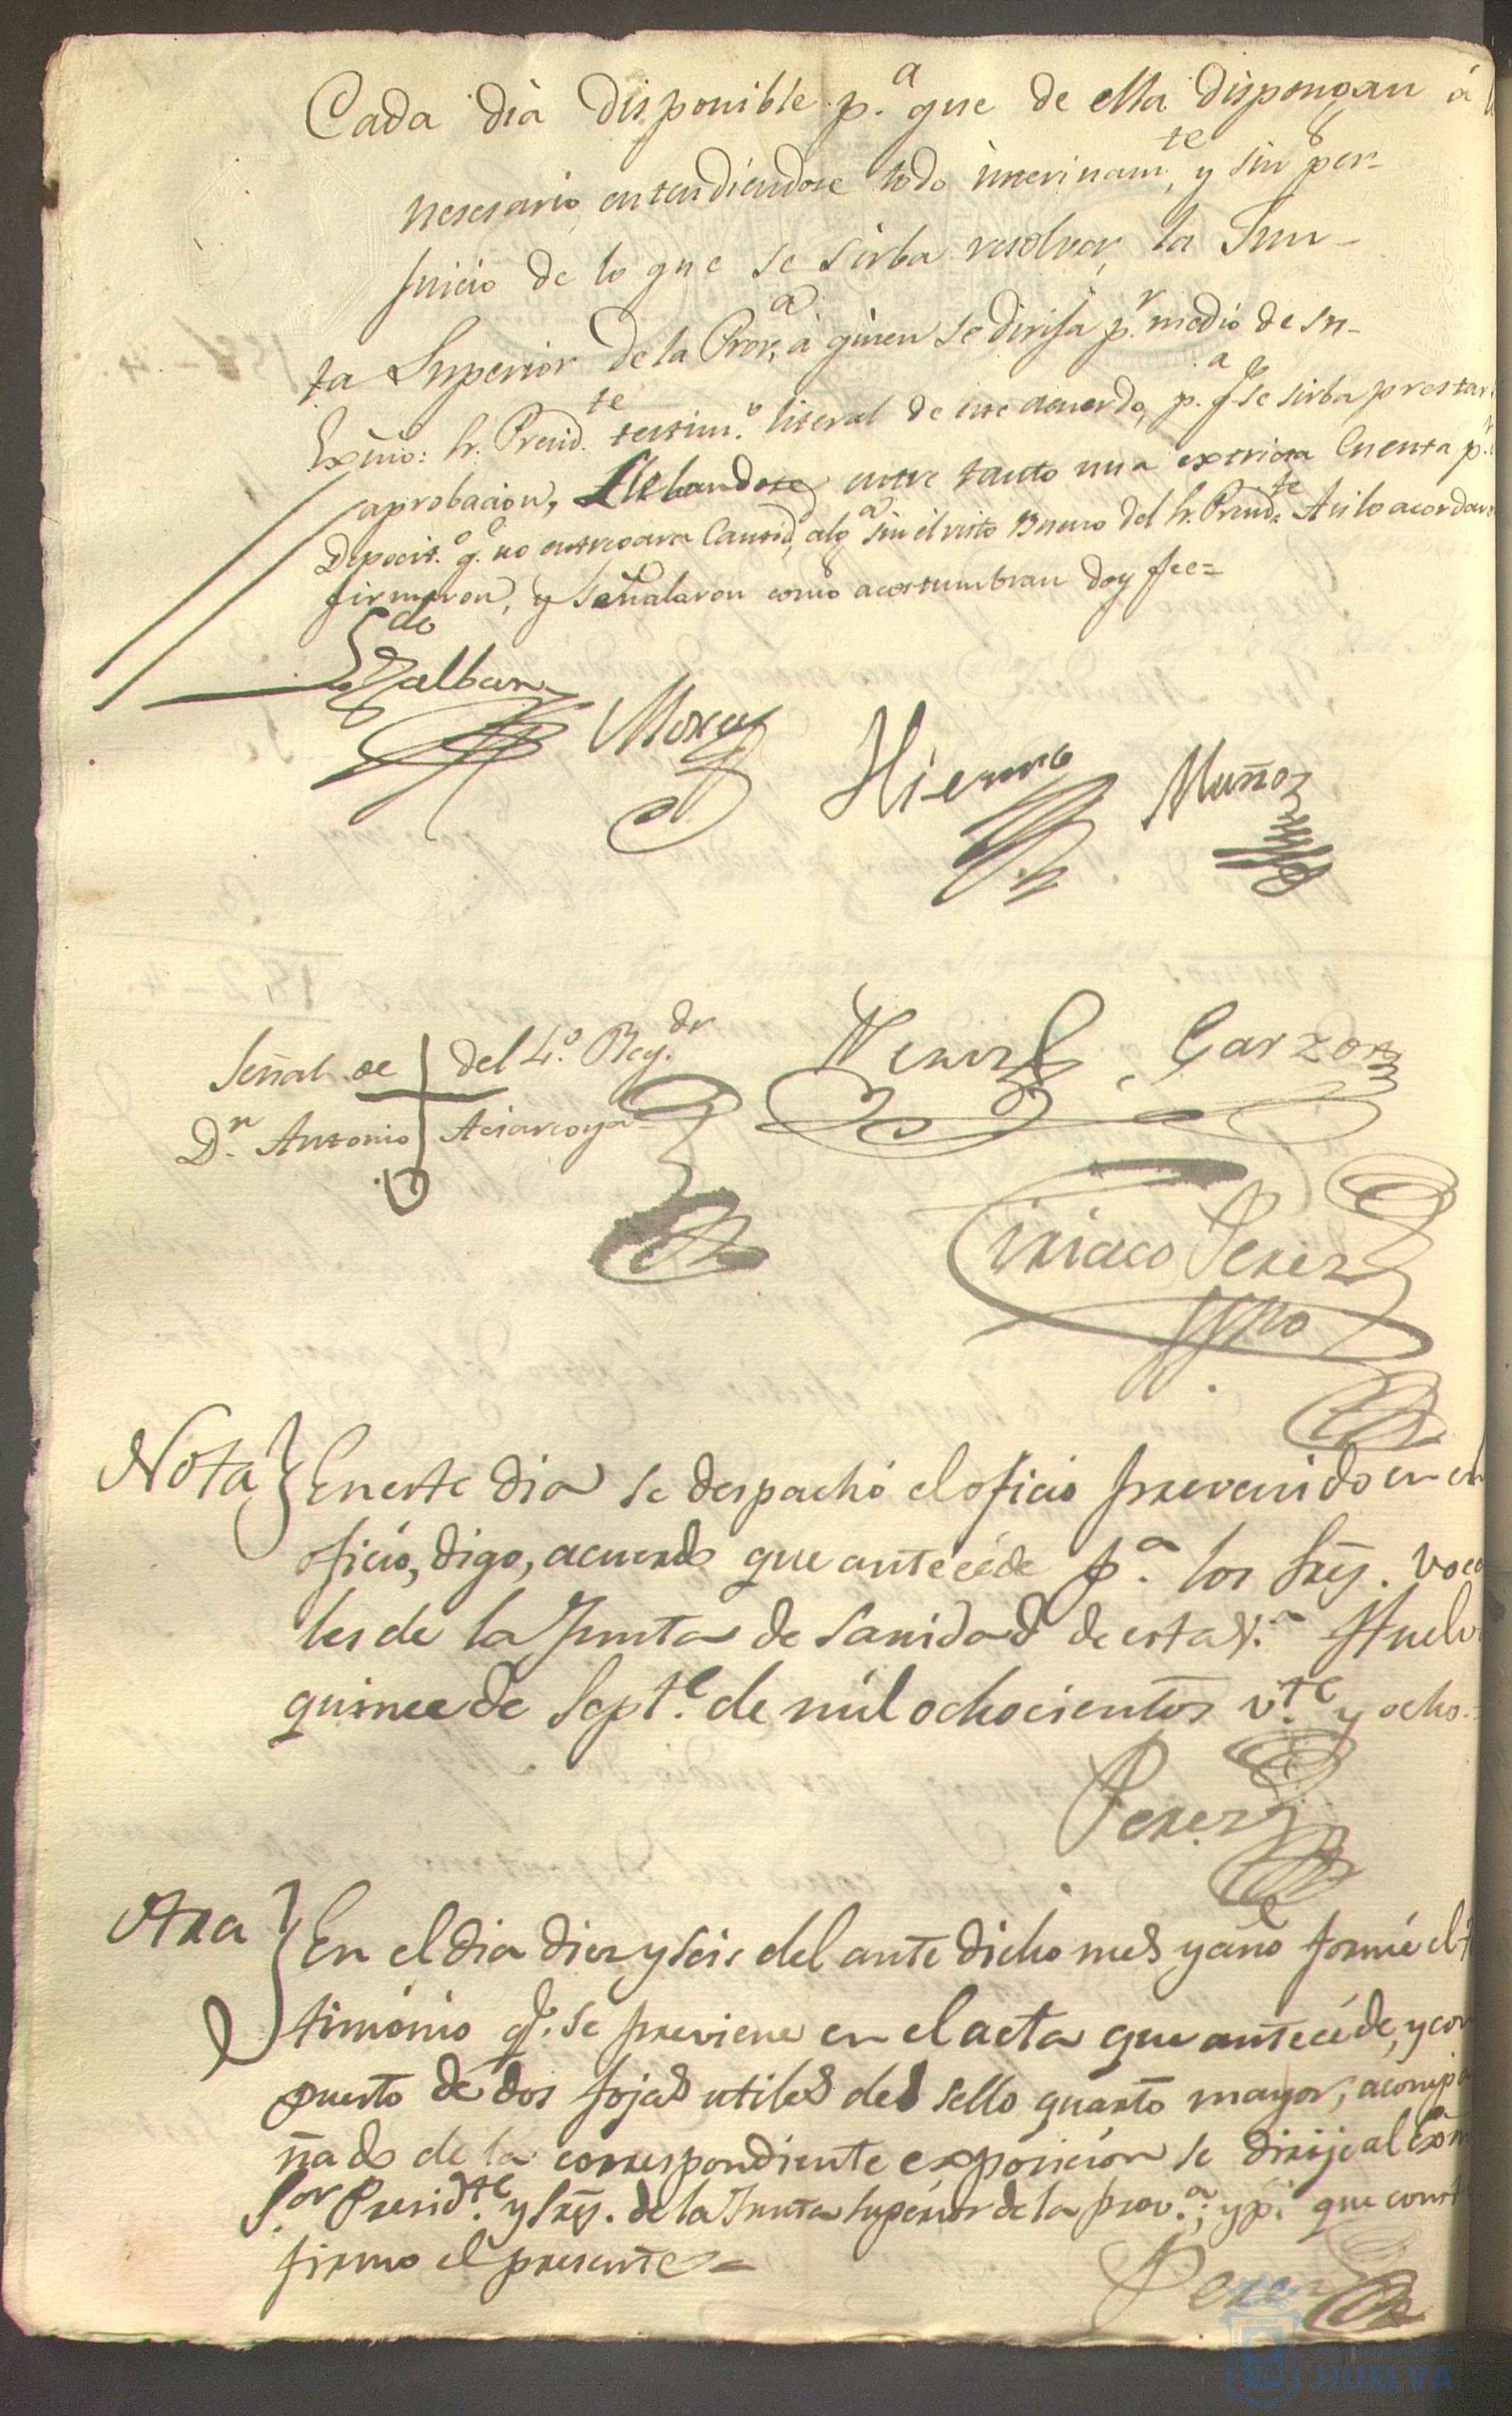 Cada dia disponible p.ª que de ella dispongan á
nesesario, entendiendose todo interinam.te, y sin per-
juicio de lo que se sirba resolver, la Jun-
ta Superior de la Prov.ª, a quien se dirija p.r medio de su
Exmo: Sr. Presid.te testim.º literal de este acuerdo, p.ª q.e se sirba prestar
aprobacion, llebandose entre tanto una extricta Cuenta p.r
Deposit.º q.e no entregara Cantid.d alg.ª sin el visto Bueno del Sr. Presid.te Asi lo acordaron
firmaron, y señalaron como acostumbran doy fee=
Mora
Hierro
Muñoz
Señal de del 4.º Reg.dr
D.n Antonio
Garzon
Ciriaco Perez
Nota } En este dia se despachó el oficio prevenido en el
oficio, digo, acuerdo que antecéde p.ª los Sres. Voca
les de la Junta de Sanidad de esta V.ª Huelva
quince de Sept.e de mil ochocientos v.te y ocho.=
Perez
Otra } En el dia diez y seis del ante dicho mes y año formé el
timónio q.e se previene en el acta que antecéde, y com
puesto de dos fojas utiles del sello quarto mayor, acompa
ñado de la correspondiente exposicion se dirije al Exmo
S.or Presid.te y Sres. de la Junta superior de la prov.ª; y p.ª que conste
firmo el presente=
Perez
HUELVA